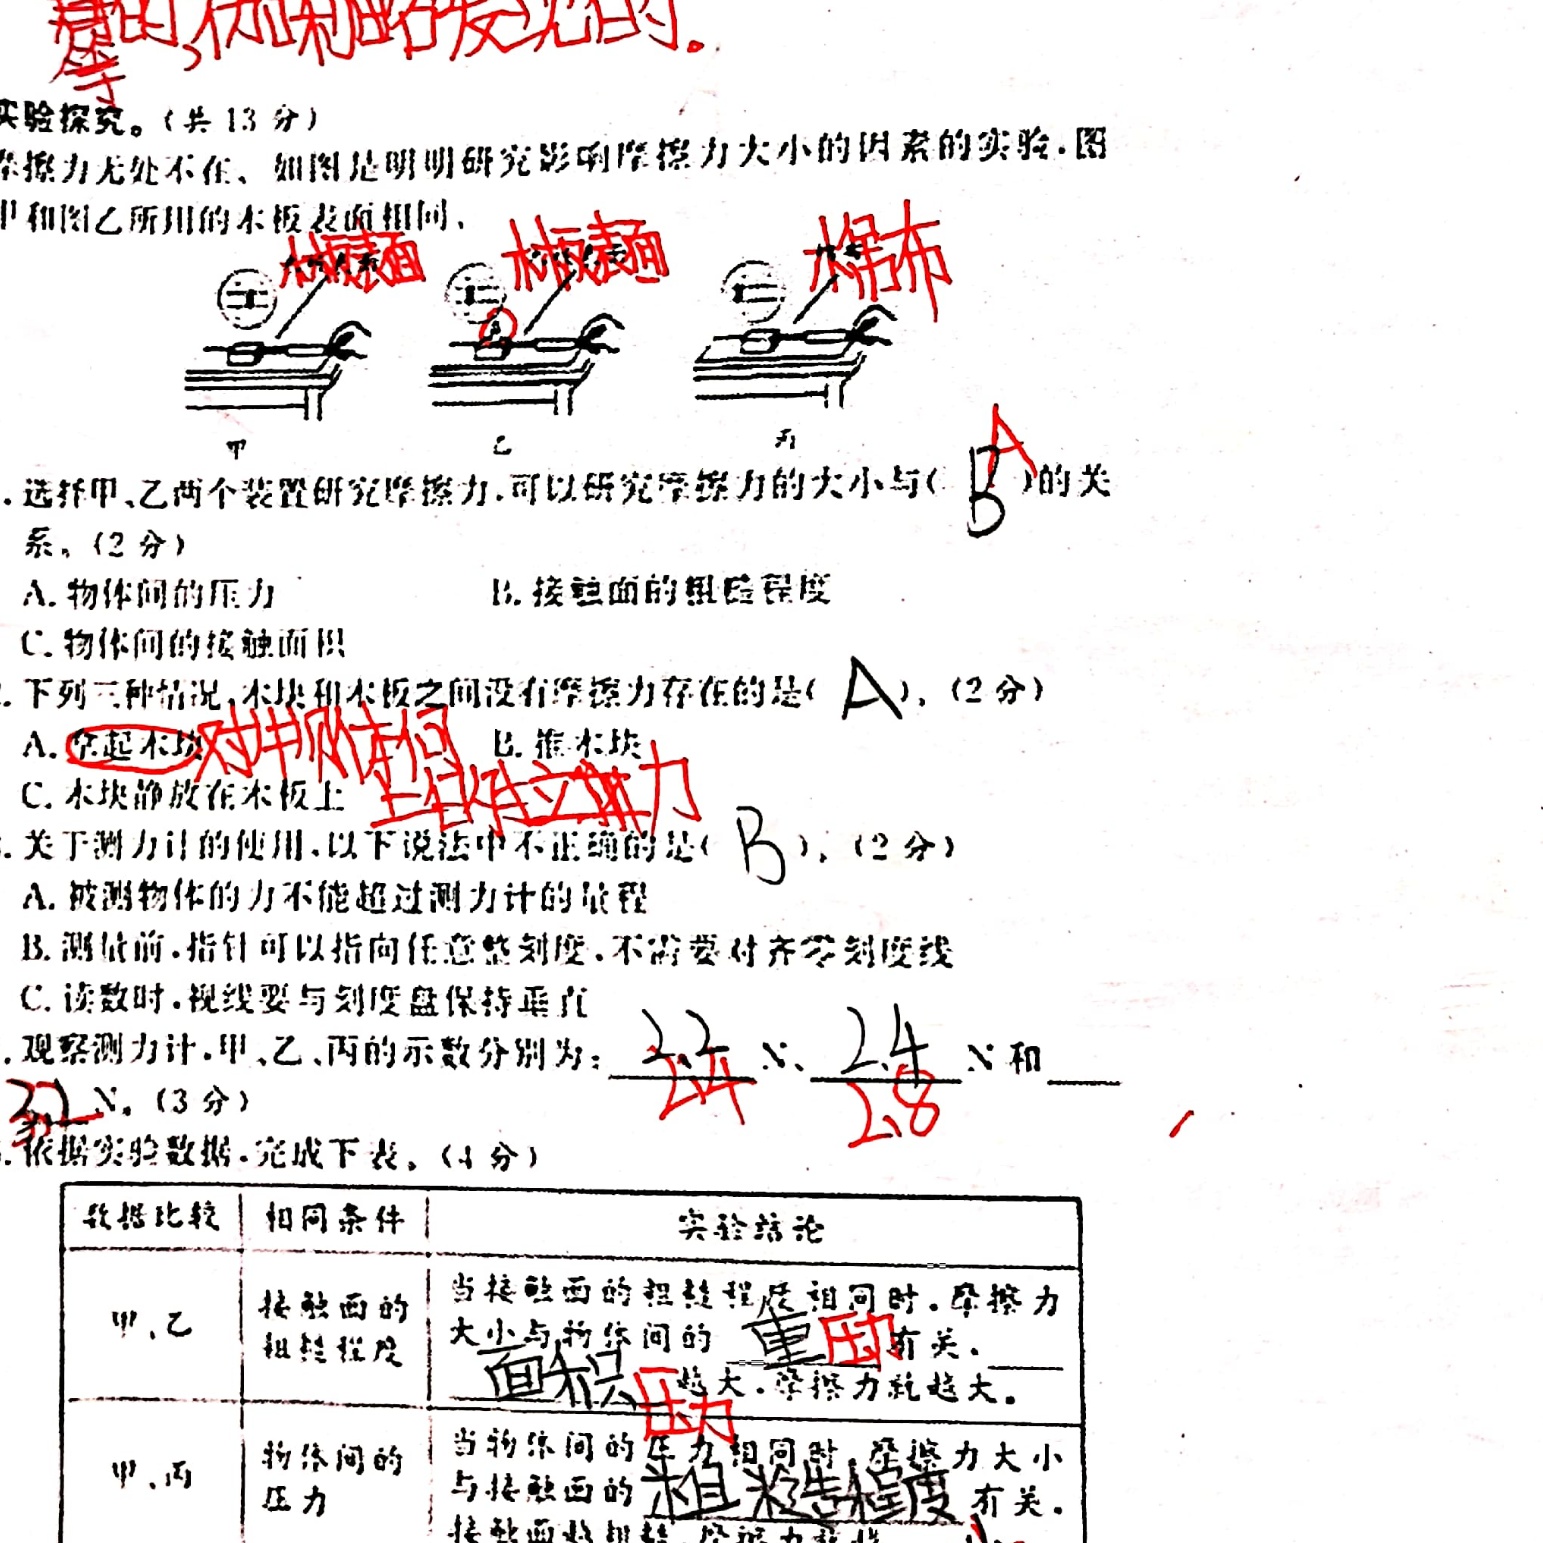 的,
等
实验探究。(共 13 分)
摩擦力无处不在、如图是明明研究影响摩擦力大小的因素的实验.图
甲和图乙所用的木板表面相同.
木板表面 木板表面 棉布
甲 乙 丙
.选择甲、乙两个装置研究摩擦力.可以研究摩擦力的大小与( B A )的关
系。(2 分)
A. 物体间的压力 B. 接触面的粗糙程度
C. 物体间的接触面积
.下列三种情况,木块和木板之间没有摩擦力存在的是( A )。(2 分)
A. 拿起木块 B. 推木块
C. 木块静放在木板上
.关于测力计的使用.以下说法中不正确的是( B )。(2 分)
A. 被测物体的力不能超过测力计的量程
B. 测量前.指针可以指向任意整刻度.不需要对齐零刻度线
C. 读数时.视线要与刻度盘保持垂直
.观察测力计.甲、乙、丙的示数分别为: 2.2 N、 2.4 N 和
2.4 2.8
N。(3 分)
.依据实验数据.完成下表。(4 分)
数据比较 相同条件 实验结论
甲、乙 接触面的粗糙程度 当接触面的粗糙程度相同时.摩擦力
大小与物体间的 重 压力 有关.
面积 压力 越大.摩擦力就越大。
甲、丙 物体间的压力 当物体间的压力相同时.摩擦力大小
与接触面的 粗糙程度 有关。
接触面越粗糙.摩擦力就越